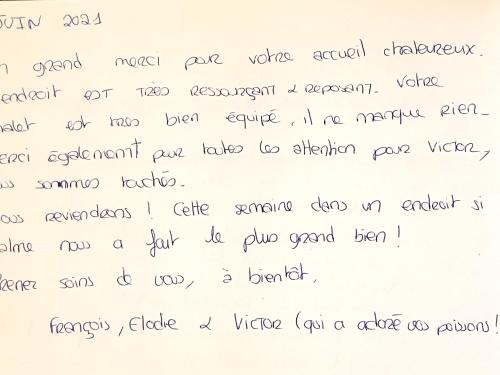 JUIN 2021
n grand merci pour votre accueil chaleureux.
endroit est très ressourçant & reposant. Votre
halet est très bien équipé, il ne manque rien_
erci également pour toutes les attention pour Victor,
us sommes touchés.
ous reviendrons ! Cette semaine dans un endroit si
alme nous a fait le plus grand bien !
renez soins de vous, à bientôt,
François, Elodie & Victor (qui a adoré vos poissons !